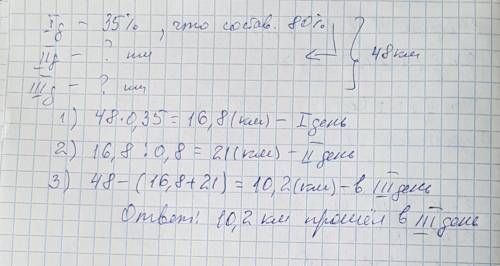 Iд – 35%, что состав. 80%
IIд – ? км
48км
IIIд – ? км
1) 48·0,35 = 16,8(км) – I день
2) 16,8 : 0,8 = 21(км) – II день
3) 48 – (16,8+21) = 10,2(км) – в III день
Ответ: 10,2 км прошёл в III день